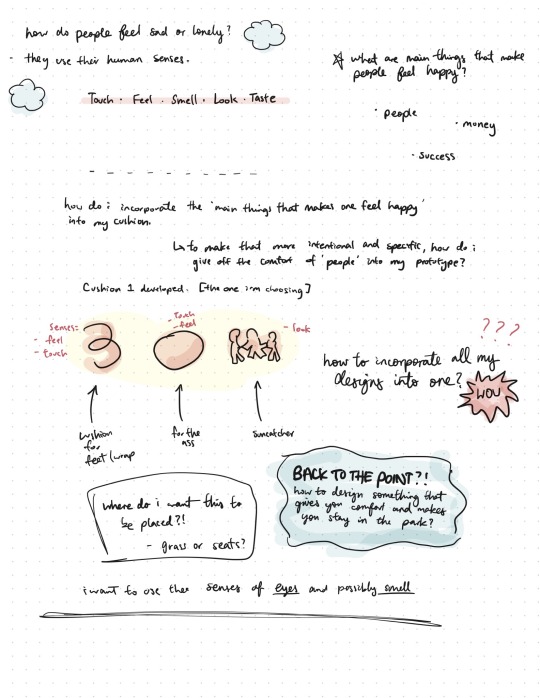 how do people feel sad or lonely?
- they use their human senses.
☆ what are main things that make
people feel happy?
Touch · Feel · Smell · Look · Taste
· people
· money
· success
how do i incorporate the 'main things that makes one feel happy'
into my cushion.
↳ to make that more intentional and specific, how do i
give off the comfort of 'people' into my prototype?
Cushion 1 developed. [the one i'm choosing]
senses:
- feel
- touch
- touch
- feel
- look
???
how to incorporate all my
designs into one?
WOW
cushion
for
feet/wrap
for the
ass
suncatcher
where do i want this to
be placed?!
- grass or seats?
BACK TO THE POINT?!
how to design something that
gives you comfort and makes
you stay in the park?
i want to use thee senses of eyes and possibly smell